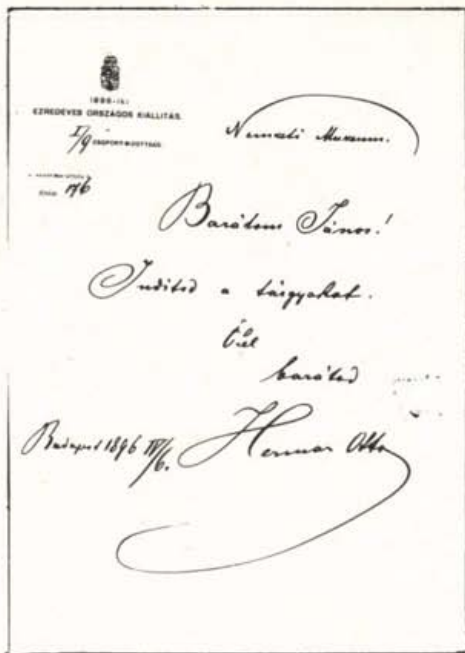 1896-IKI
EZREDÉVES ORSZÁGOS KIÁLLITÁS.
I/9 CSOPORTBIZOTTSÁG
176
Nemzeti Muzeum.
Barátom János!
Inditsd a tárgyakat.
Ölel
barátod
Budapest 1896 IV/6. Herman Otto